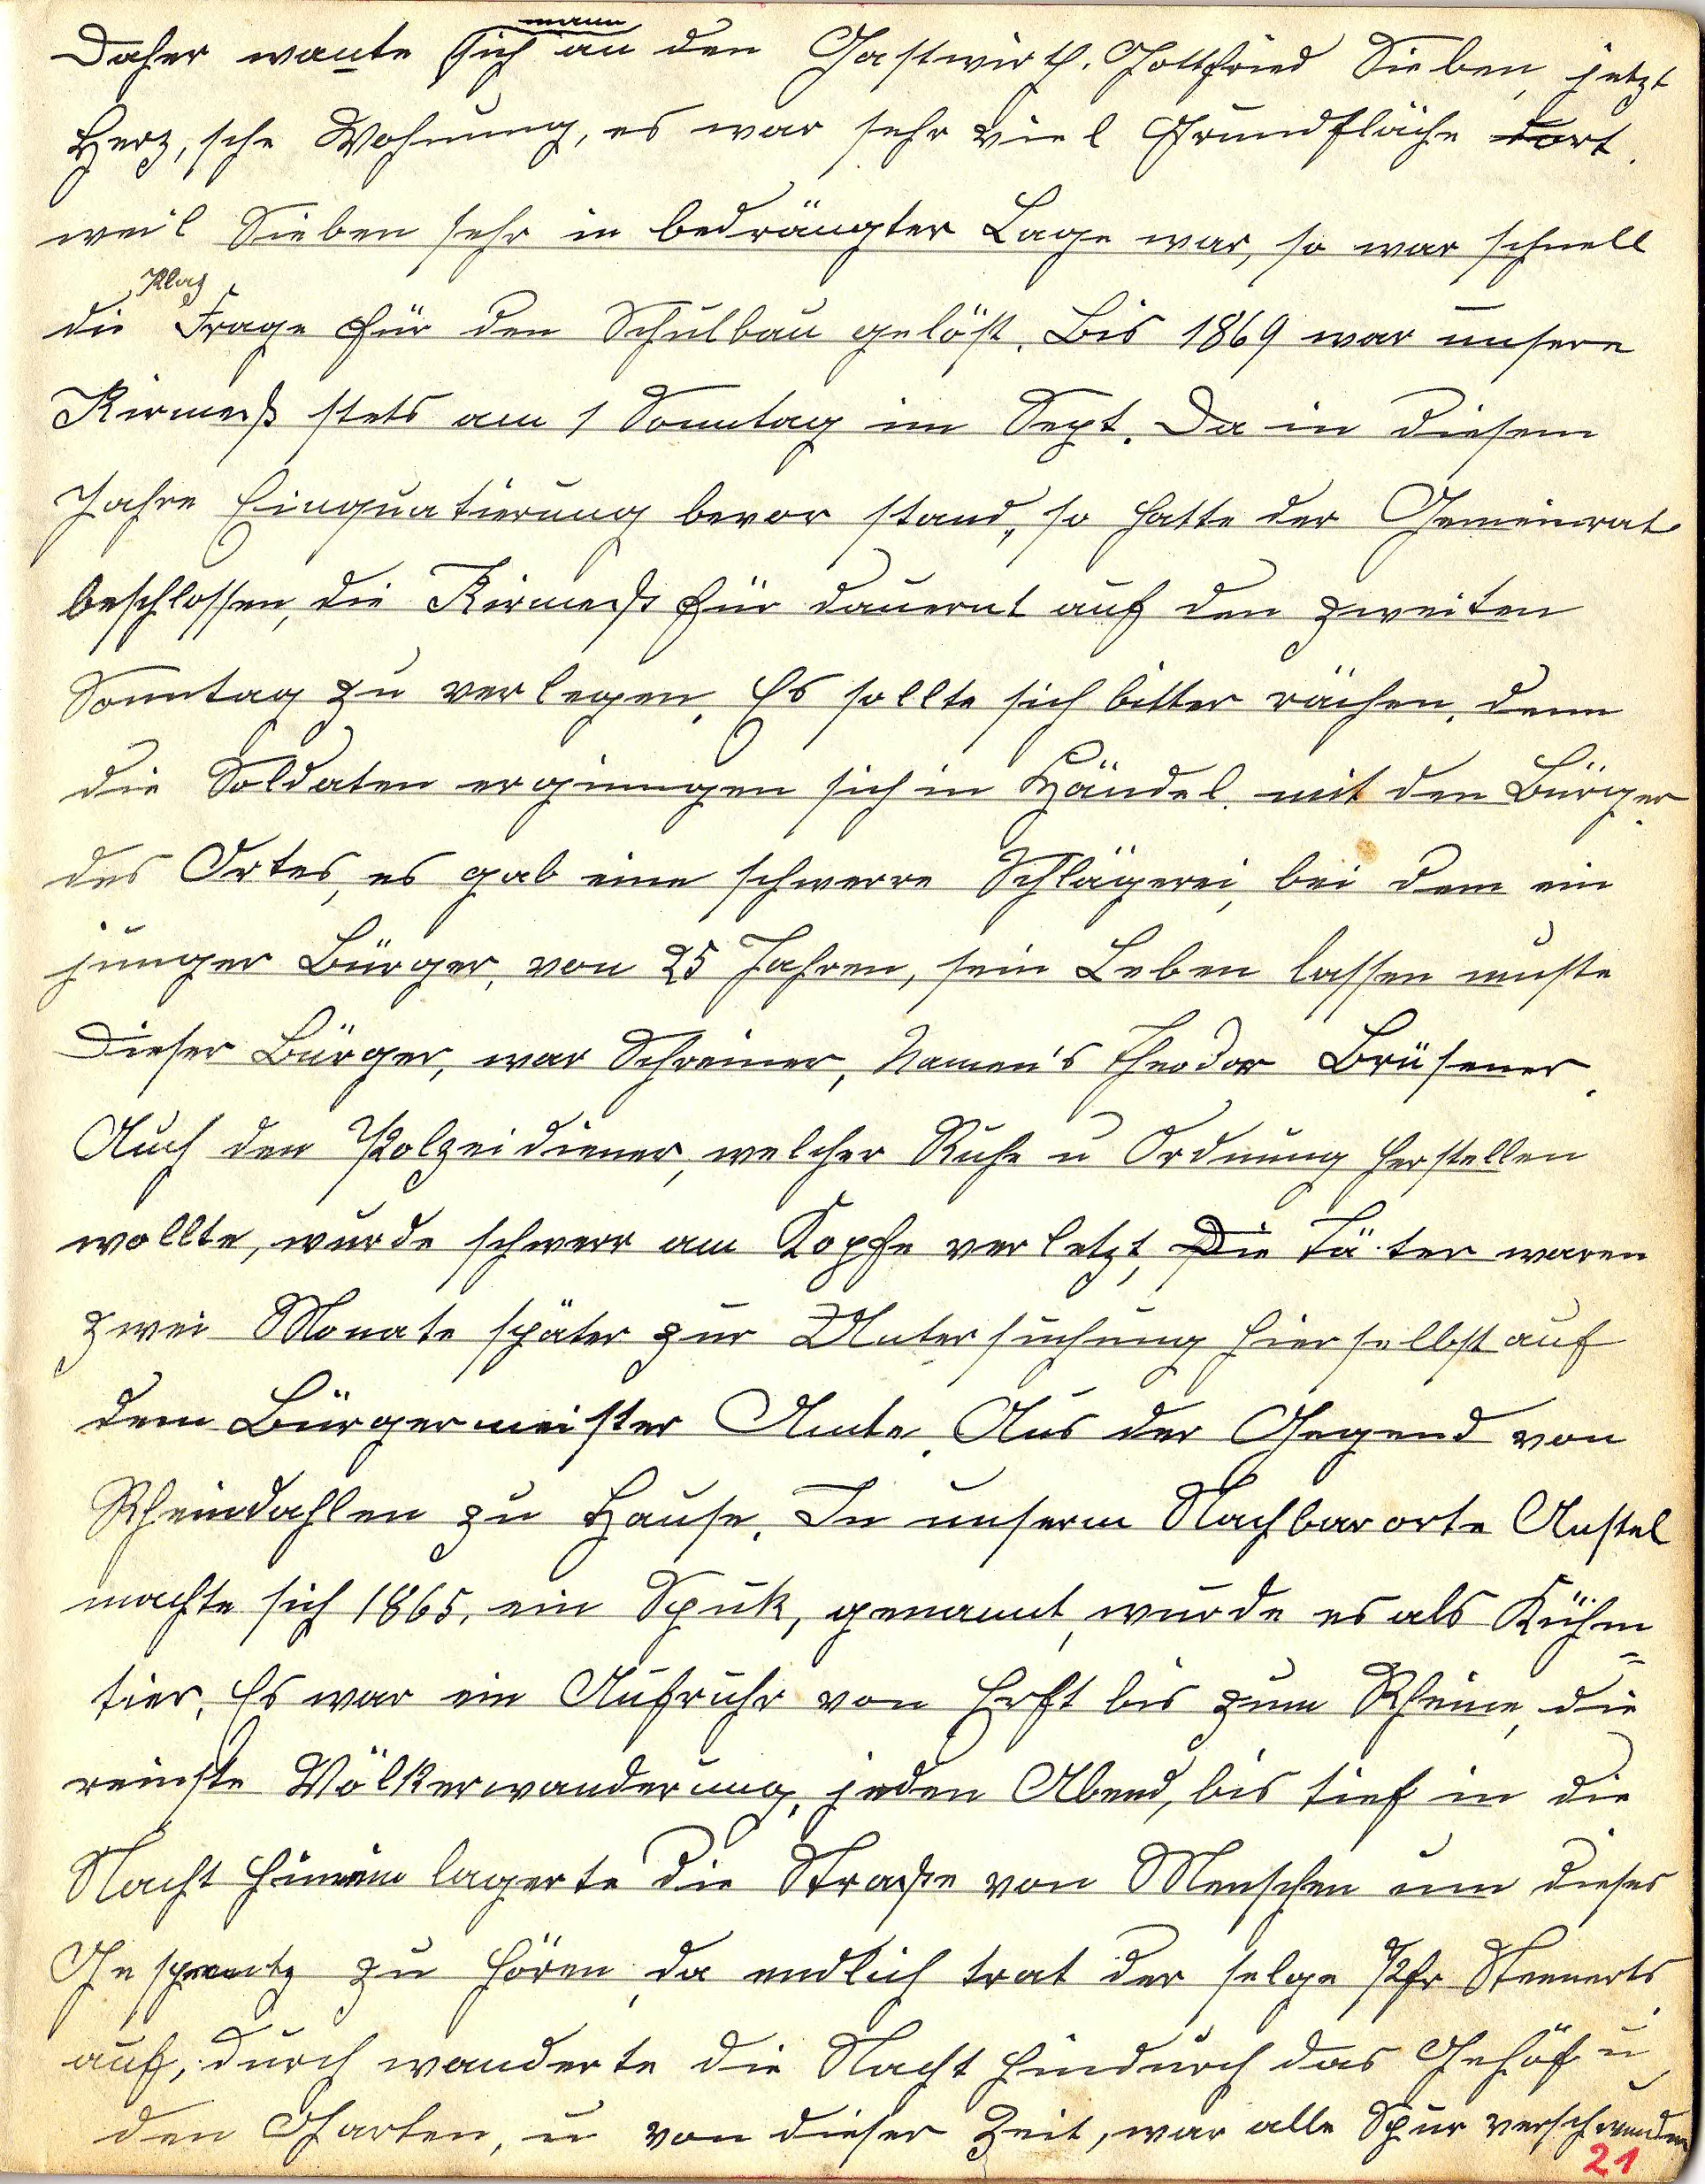 Daher wante sich mann an den Gastwirth. Gottfried Sieben, jetzt
Herz,sche Wohnung, es war sehr viel Grundfläche dort.
weil Sieben sehr in bedrängter Lage war, so war schnell
die Platz Frage für den Schulbau gelöst. Bis 1869 war unsere
Kirmeß stets am 1 Sonntag im Sept. Da in diesem
Jahre Einquatierung bevor stand, so hatte der Gemeinrat
beschlossen, die Kirmeß für dauernt auf den zweiten
Sonntag zu verlegen. Es sollte sich bitter rächen, denn
die Soldaten erginngen sich in Händel, mit den Bürger
des Ortes, es gab eine schwerre Schlägerei, bei dem ein
junger Bürger, von 25 Jahren, sein Leben lassen muste
Dieser Bürger, war Schreiner, Namen's Theodor Brüsener.
Auch den Polzeidiener, welcher Ruhe u Ordnung herstellen
wollte, wurde schwerr am Kopfe verletzt, Die Täter waren
zwei Monate später zur Untersuchung hierselbst auf
dem Bürgermeister Amte. Aus der Gegend von
Rheindahlen zu Hause. In unserm Nachbarorte Anstel
machte sich 1865, ein Spuk, genannt, wurde es als Kühm=
tier. Es war ein Aufruhr von Erft bis zum Rheine, die
reinste Völkerwanderung, jeden Abend, bis tief in die
Nacht hinnein lagerte die Straße von Menschen um dieses
zu hören, da endlich trat der selge Pfr Steenerts
auf, durch wanderte die Nacht hindurch das Gehöf u
den Garten, u von dieser Zeit, war alle Spur verschwunden
21